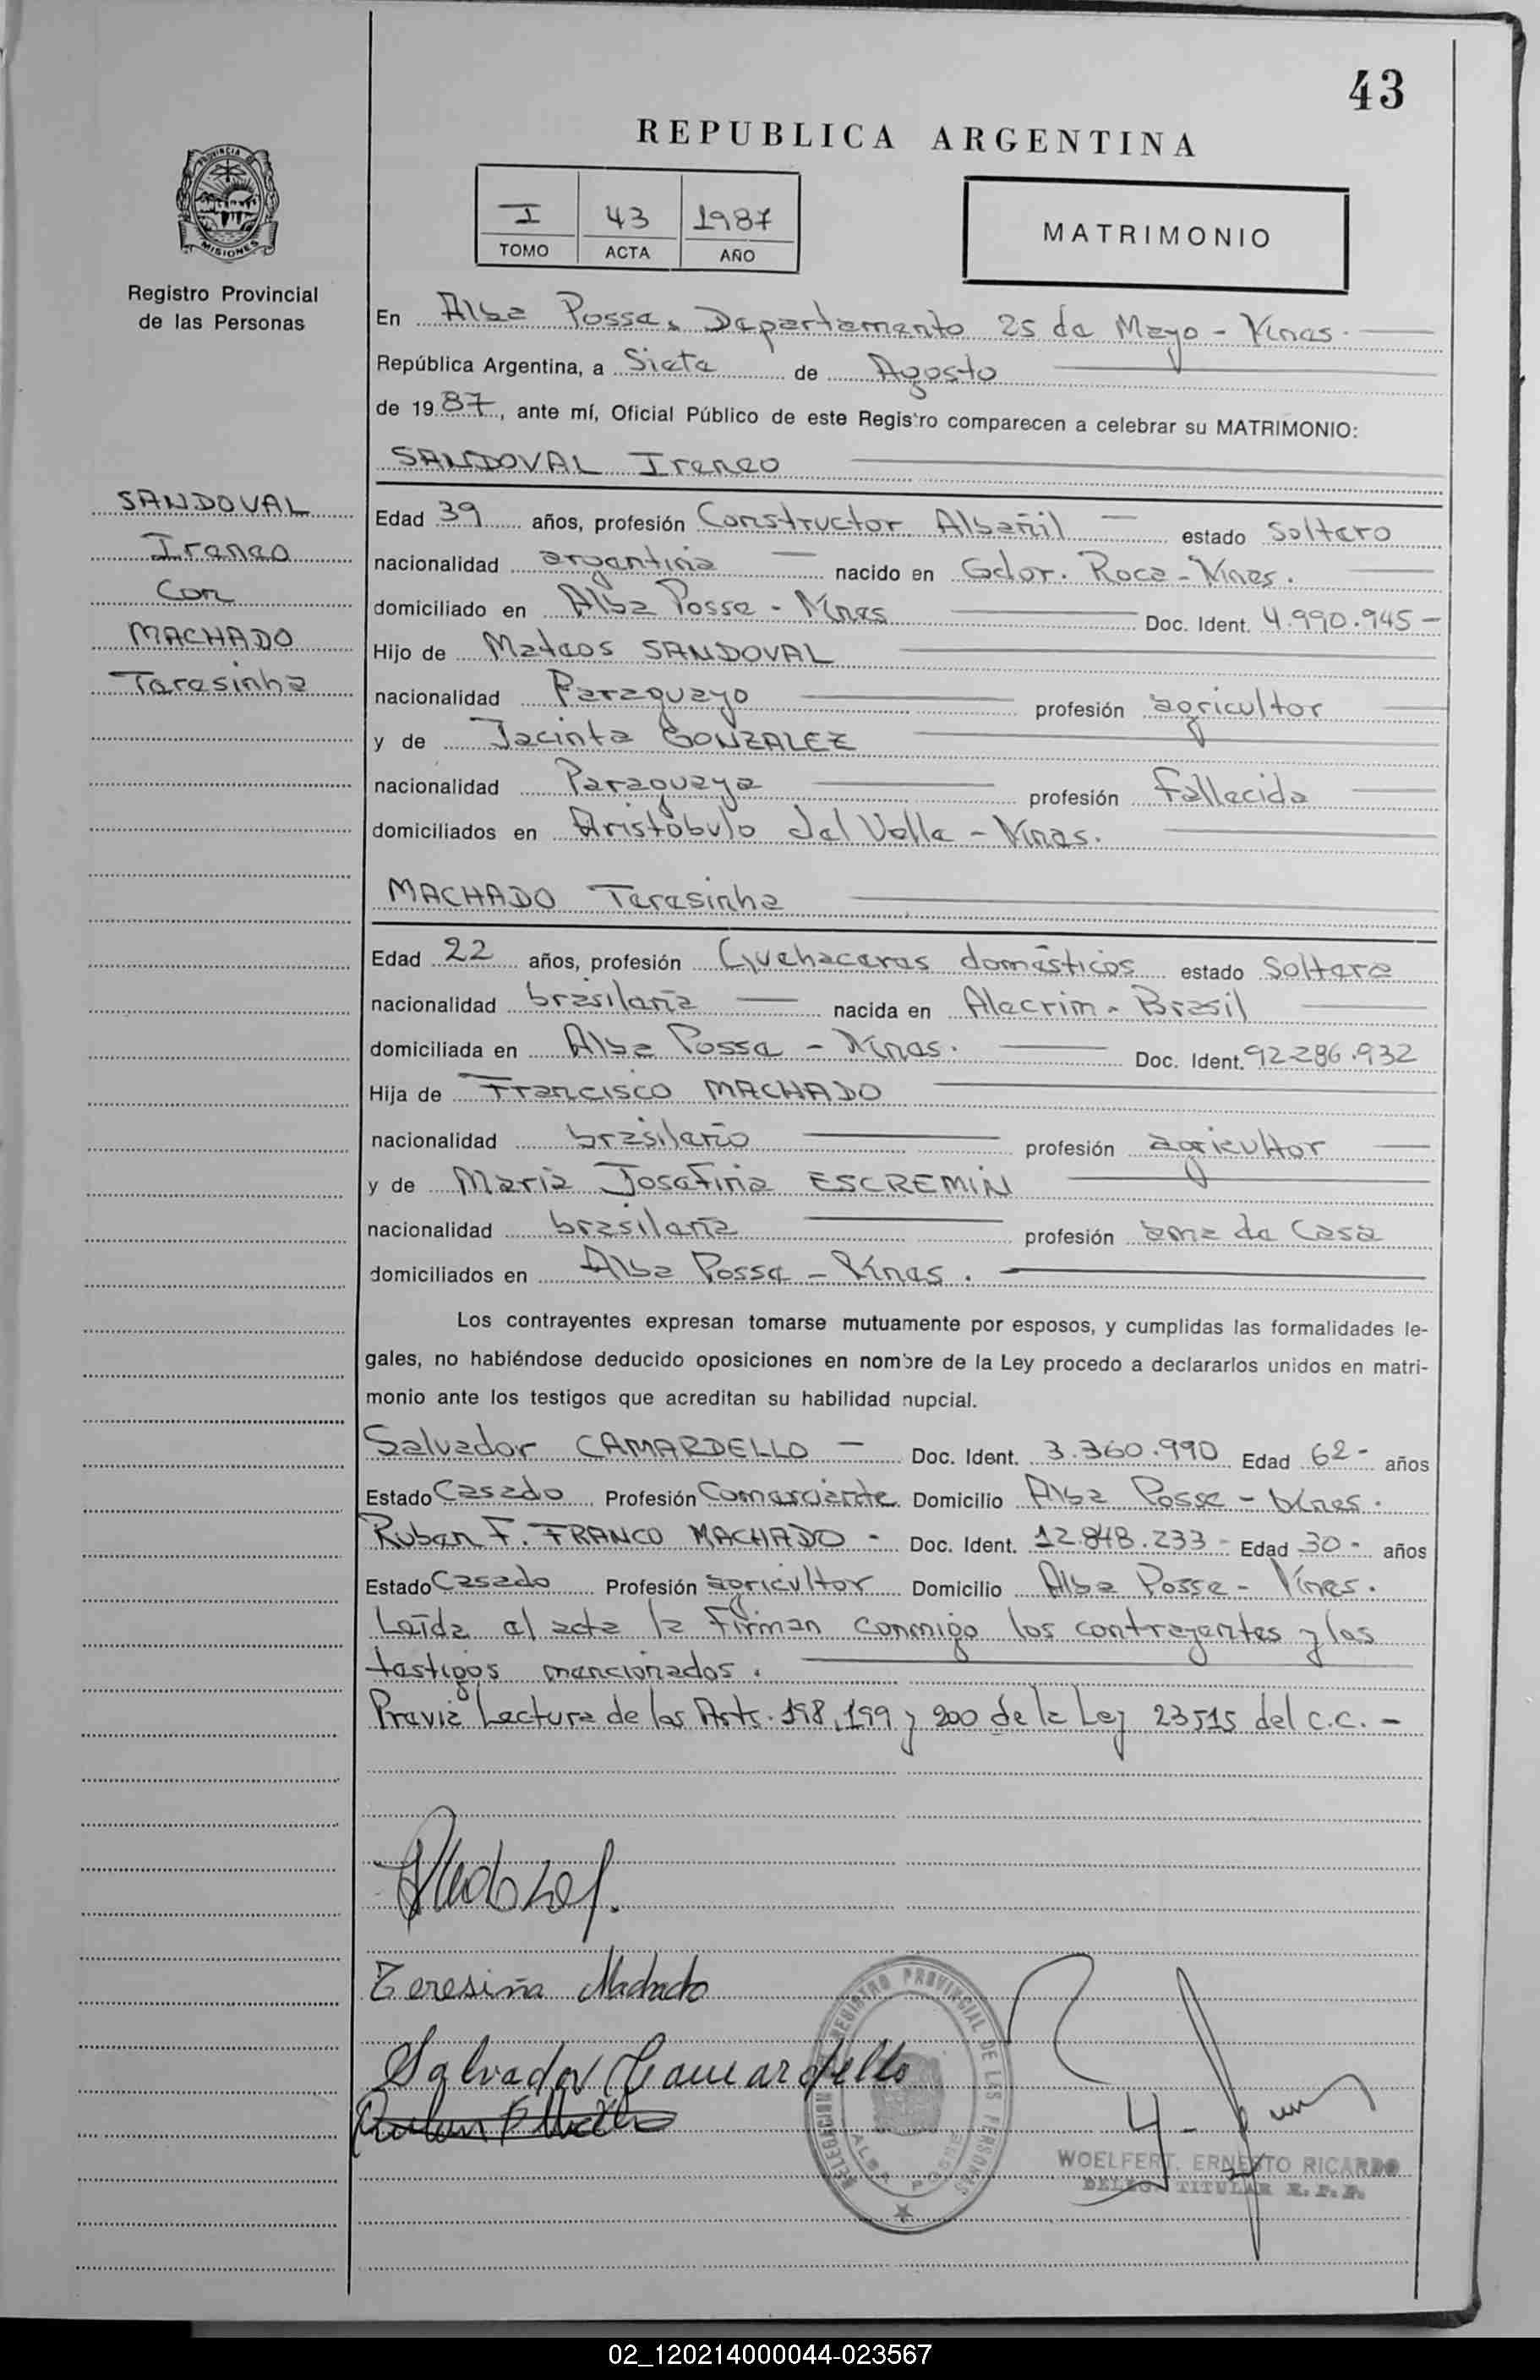 43
REPUBLICA ARGENTINA
PROVINCIA DE
MISIONES
Registro Provincial
de las Personas
I 43 1987
TOMO ACTA AÑO
MATRIMONIO
En Alba Posse, Departamento 25 de Mayo - Mnes.
República Argentina, a Siete de Agosto
de 1987, ante mí, Oficial Público de este Registro comparecen a celebrar su MATRIMONIO:
SANDOVAL Ireneo
SANDOVAL
Ireneo
Con
MACHADO
Teresinha
Edad 39 años, profesión Constructor Albañil estado Soltero
nacionalidad argentina nacido en Gdor. Roca - Mnes.
domiciliado en Alba Posse - Mnes Doc. Ident. 4.990.945 -
Hijo de Mateos SANDOVAL
nacionalidad Paraguayo profesión agricultor
y de Jacinta GONZALEZ
nacionalidad Paraguaya profesión fallecida
domiciliados en Aristóbulo del Valle - Mnes.
MACHADO Teresinha
Edad 22 años, profesión Quehaceres domésticos estado Soltera
nacionalidad brasileña nacida en Alecrim - Brasil
domiciliada en Alba Posse - Mnes. Doc. Ident. 92.286.932
Hija de Francisco MACHADO
nacionalidad brasileño profesión agricultor
y de María Josefina ESCREMIN
nacionalidad brasileña profesión ama de Casa
domiciliados en Alba Posse - Mnes.
Los contrayentes expresan tomarse mutuamente por esposos, y cumplidas las formalidades le-
gales, no habiéndose deducido oposiciones en nombre de la Ley procedo a declararlos unidos en matri-
monio ante los testigos que acreditan su habilidad nupcial.
Salvador CAMARDELLO - Doc. Ident. 3.360.990 Edad 62 - años
Estado Casado Profesión Comerciante Domicilio Alba Posse - Mnes.
Ruben F. FRANCO MACHADO - Doc. Ident. 12.848.233 - Edad 30 - años
Estado Casado Profesión agricultor Domicilio Alba Posse - Mnes.
Leída el acta la firman conmigo los contrayentes y los
testigos mencionados.
Previa Lectura de los Arts. 198, 199 y 200 de la Ley 23515 del C.C. -
Teresiña Machado
Salvador Camardello
DELEGACION REGISTRO PROVINCIAL DE LAS PERSONAS
ALBA POSSE
WOELFERT, ERNESTO RICARDO
DELEG. TITULAR R. P. P.
02_120214000044-023567